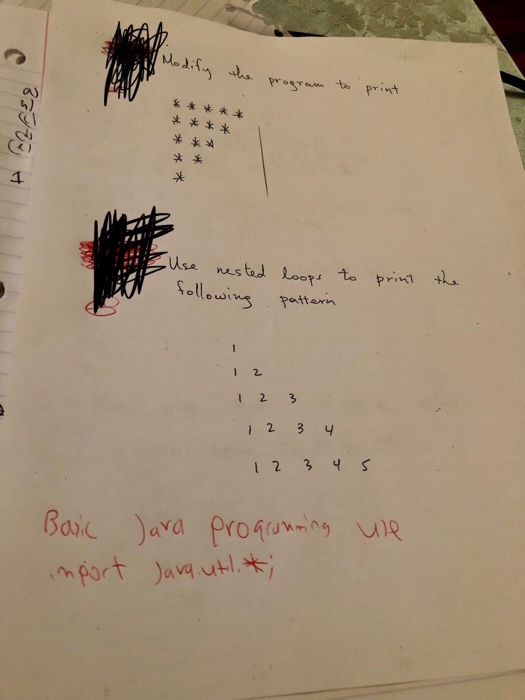 Modify the program to print
* * * * *
* * * *
* * *
* *
*
Use nested loops to print the
following pattern
1
1 2
1 2 3
1 2 3 4
1 2 3 4 5
Basic Java programming use
import Java.util.*;